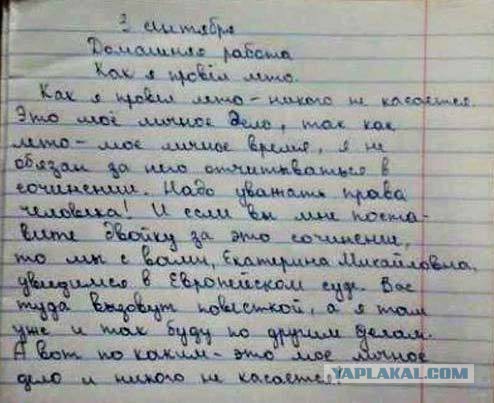 3 сентября
Домашняя работа
Как я провёл лето.
Как я провёл лето - никого не касается.
Это моё личное дело, так как
лето - моё личное время, я не
обязан за него отчитываться в
сочинении. Надо уважать права
человека! И если вы мне поста-
вите двойку за это сочинение,
то мы с вами, Екатерина Михайловна,
увидимся в Европейском суде. Вас
туда вызовут повесткой, а я там
уже и так буду по другим делам.
А вот по каким - это мое личное
дело и никого не касается!
YAPLAKAL.COM